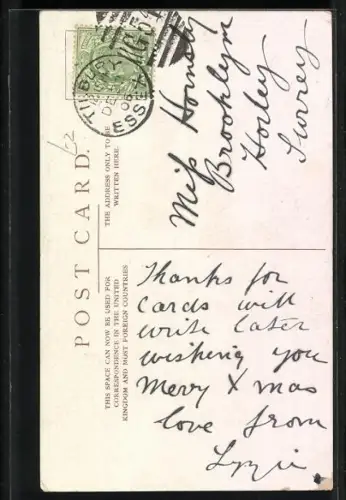 POST CARD.
THE ADDRESS ONLY TO BE
WRITTEN HERE.
TILBURY
DE
06
ESSEX
Brooklyn
Horley
Surrey
THIS SPACE CAN NOW BE USED FOR
CORRESPONDENCE IN THE UNITED
KINGDOM AND MOST FOREIGN COUNTRIES
Miss
Thanks for
cards will
write later
wishing you
Merry X mas
love from